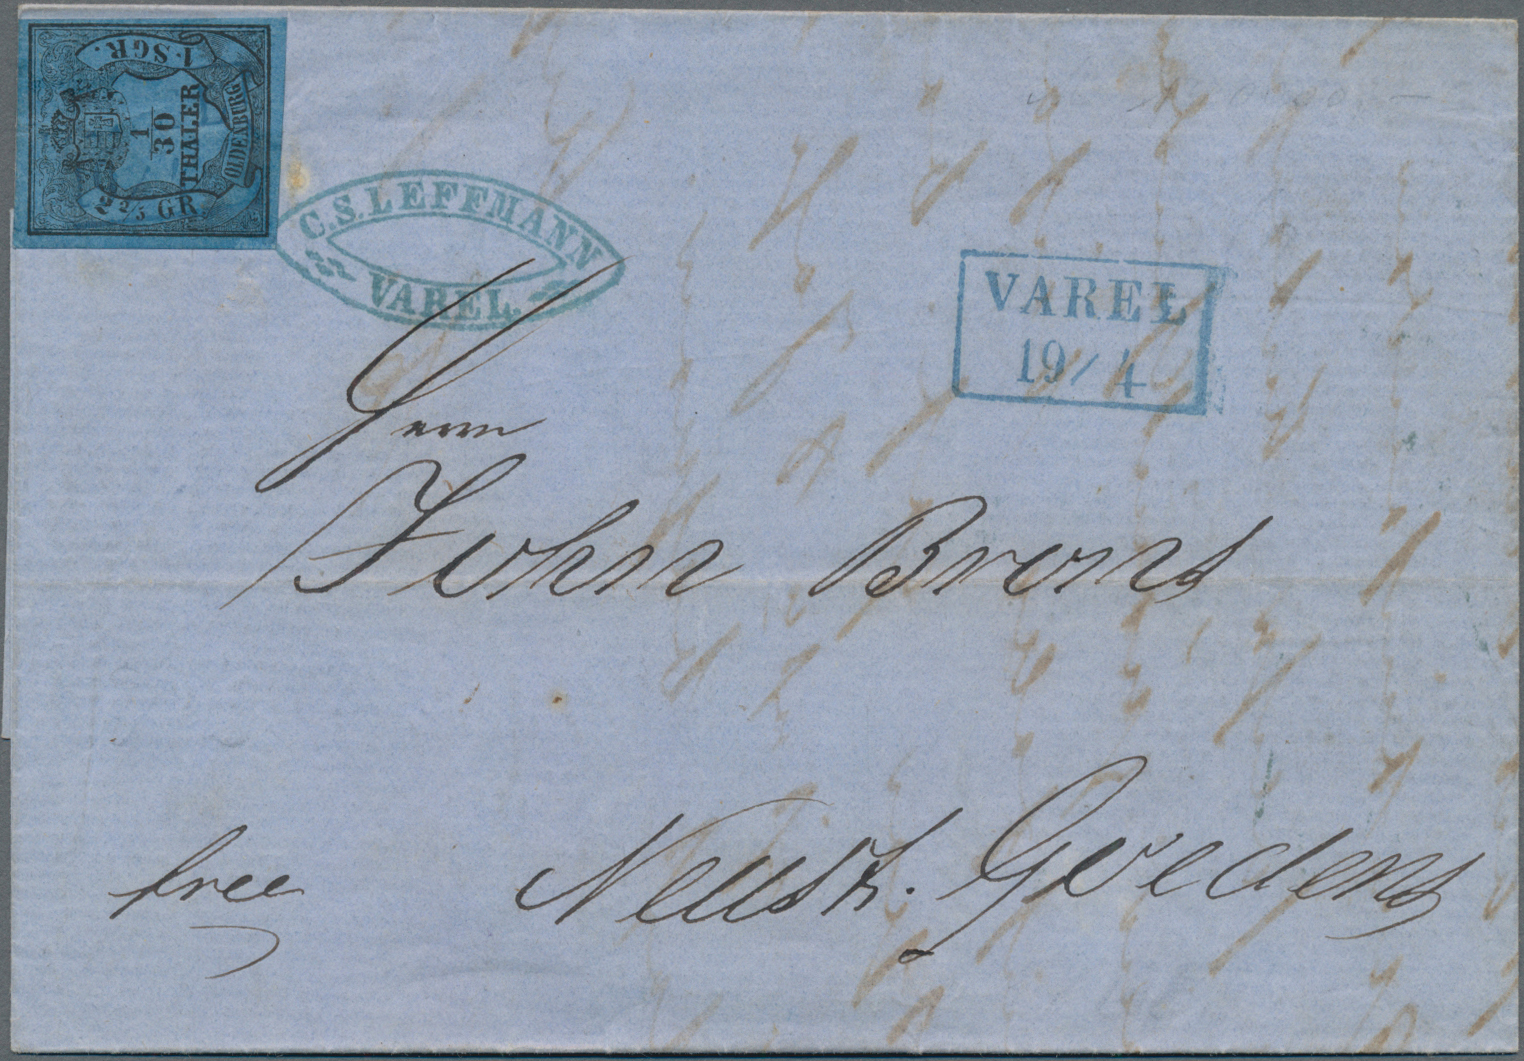 1·SGR.
1/30
THALER
OLDENBURG
2 2/5 GR.
C.S. LEFFMANN
VAREL.
VAREL
19/4
Herrn
John Brons
free
Neust. Goedens